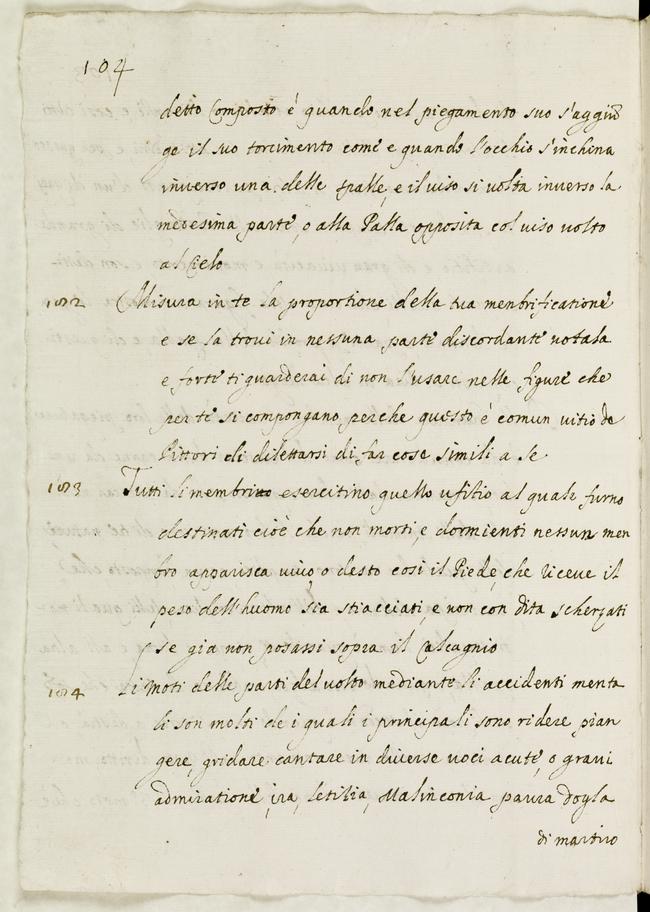 104
detto Composto è quando nel piegamento suo s'aggiū
ge il suo torcimento come e quando l'occhio s'inchina
inverso una delle spalle, e il viso si volta inverso la
medesima parte, o alla spalla opposita col viso volto
al Cielo
Misura in te la proportione della tua menbrificatione
e se la trovi in nessuna parte discordante notala
e forte ti guarderai di non l'usare nelle figure che
per te si compongano perche questo è comun vitio de
Pittori di dilettarsi di far cose simili a se
Tutti li membri esercitino quello ufitio al quale furno
destinati cioè che non morti, e dormienti nessun men
bro apparisca vivo, o desto così il Piede, che riceve il
peso dell'huomo sia stiacciati, e non con dita scherzati
se gia non posassi sopra il Calcagnio
Li moti delle parti del volto mediante li accidenti menta
li son molti de i quali i principali sono ridere pian
gere, gridare cantare in diverse voci acute, o gravi
admiratione, ira, letitia, Malinconia paura dogla
di martiro